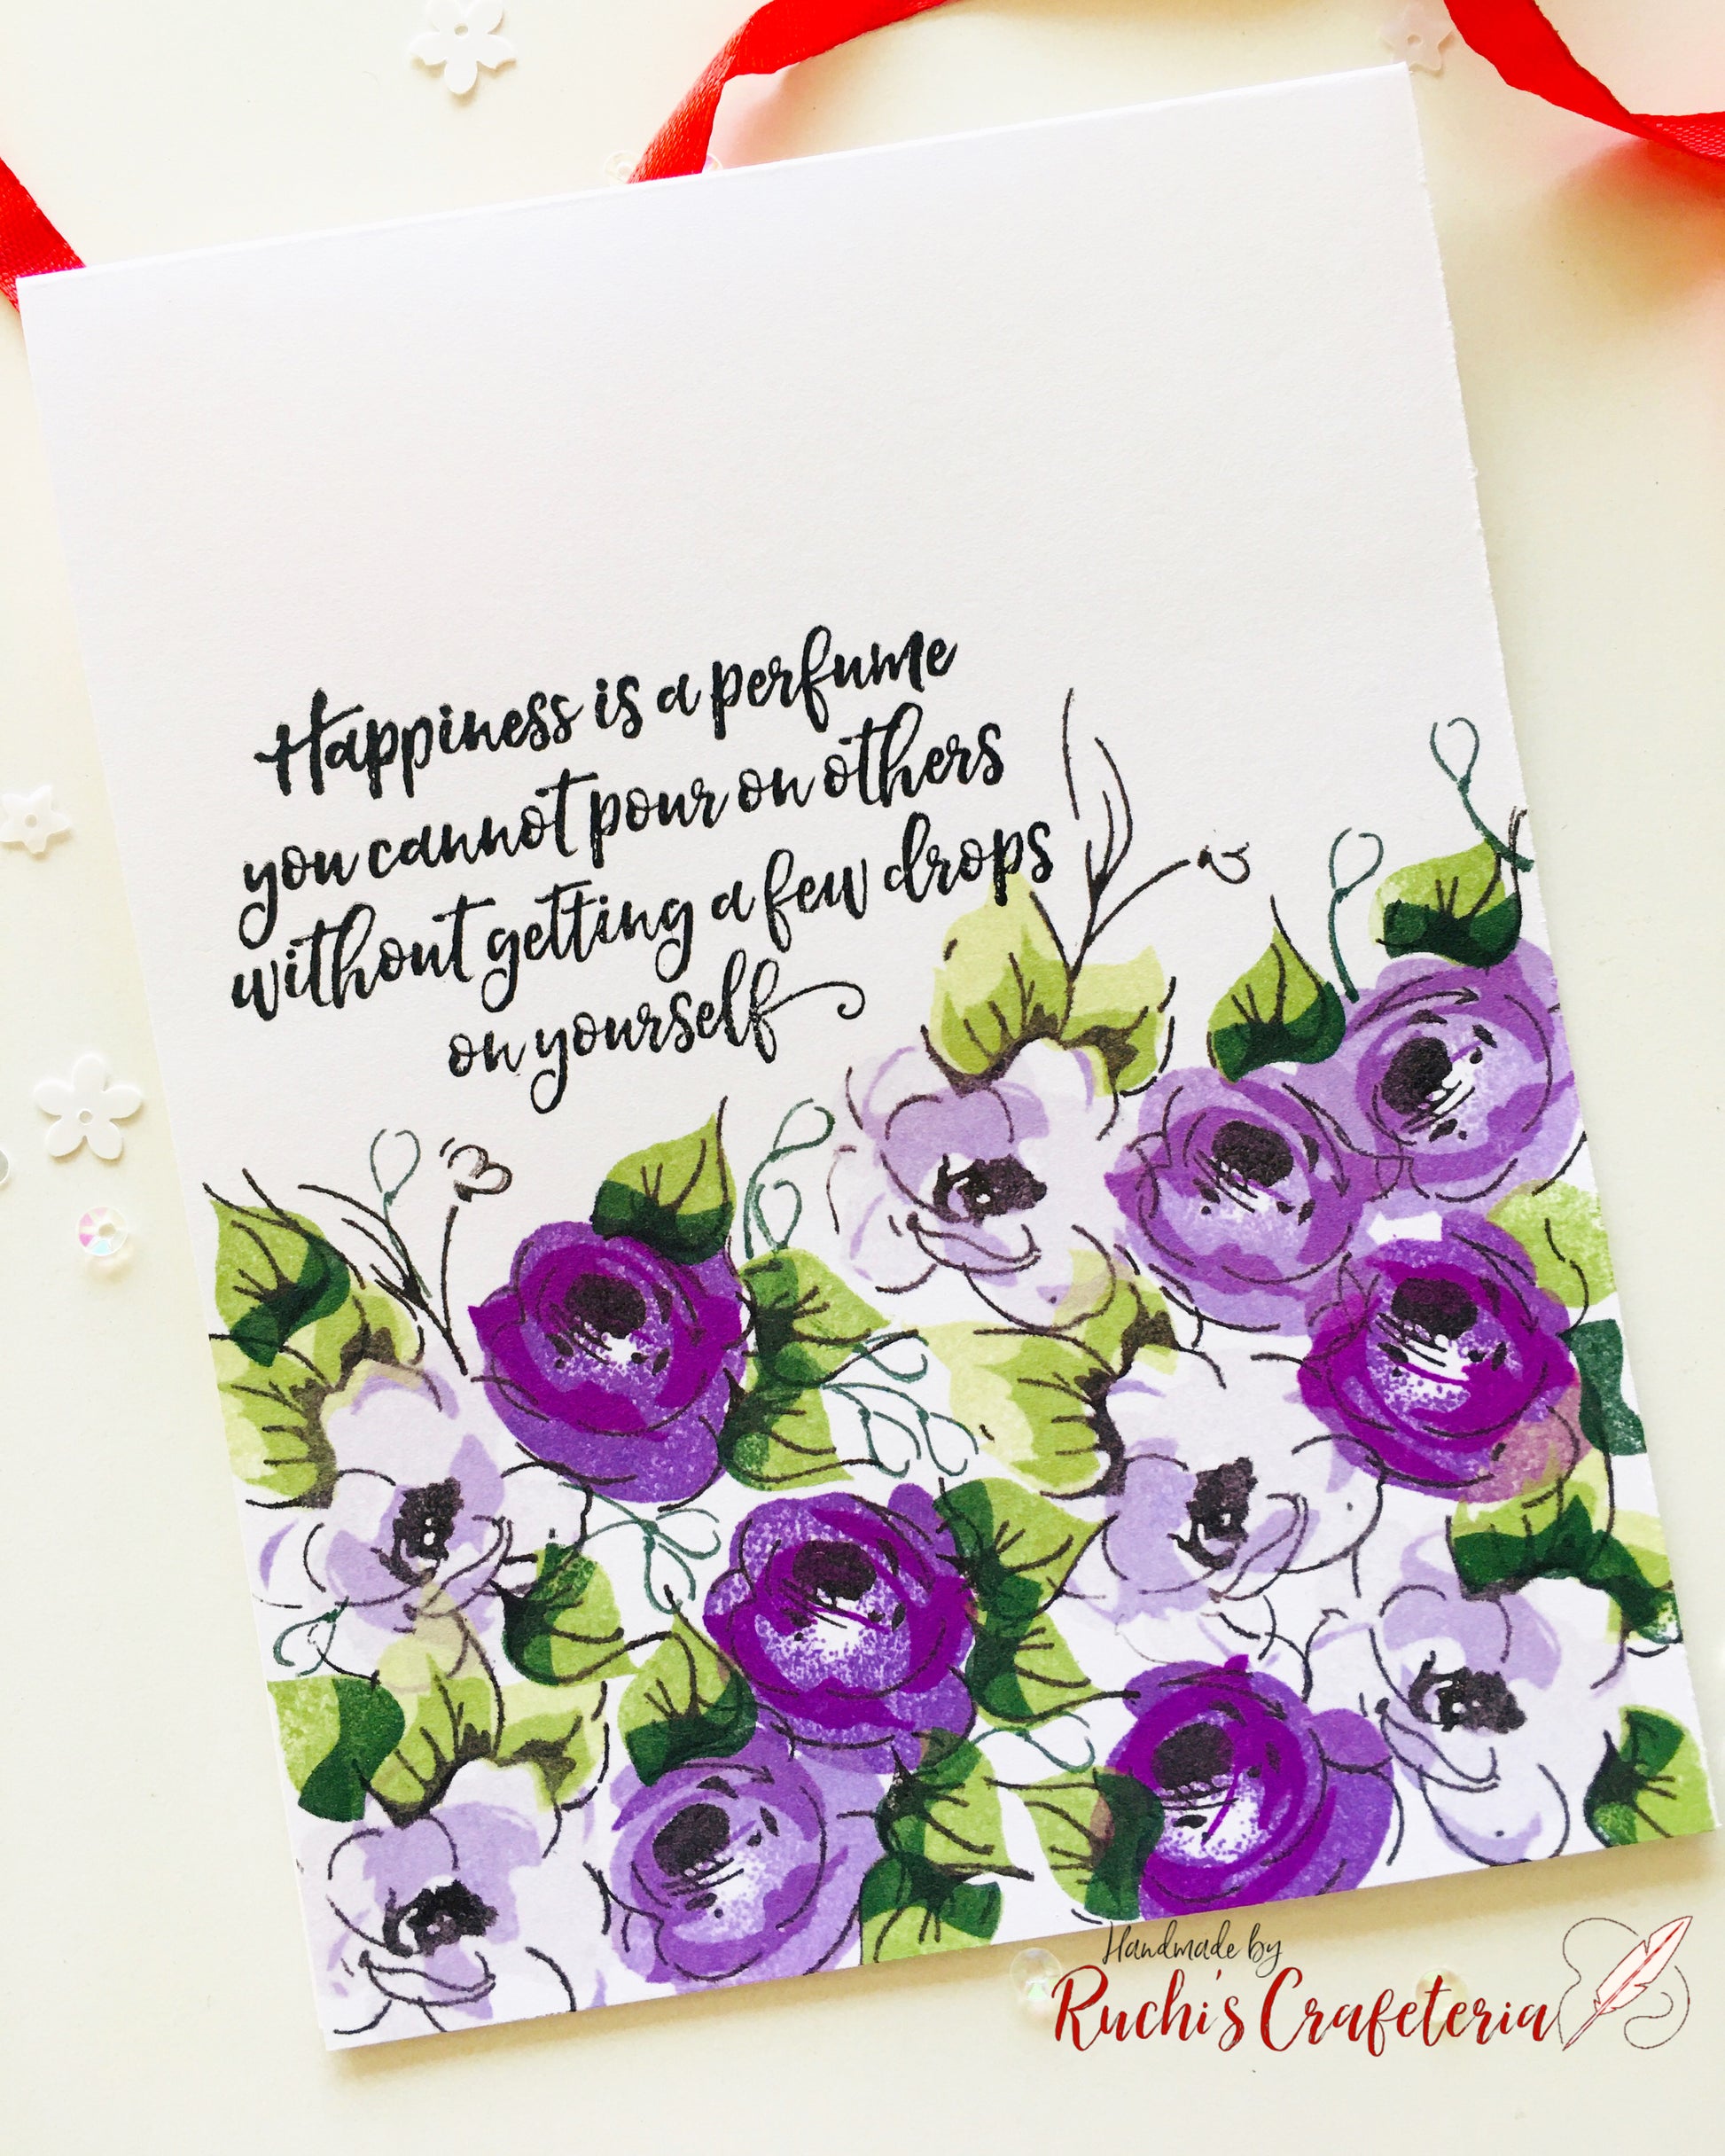 Happiness is a perfume
you cannot pour on others
without getting a few drops
on yourself
Handmade by
Ruchi's Crafeteria